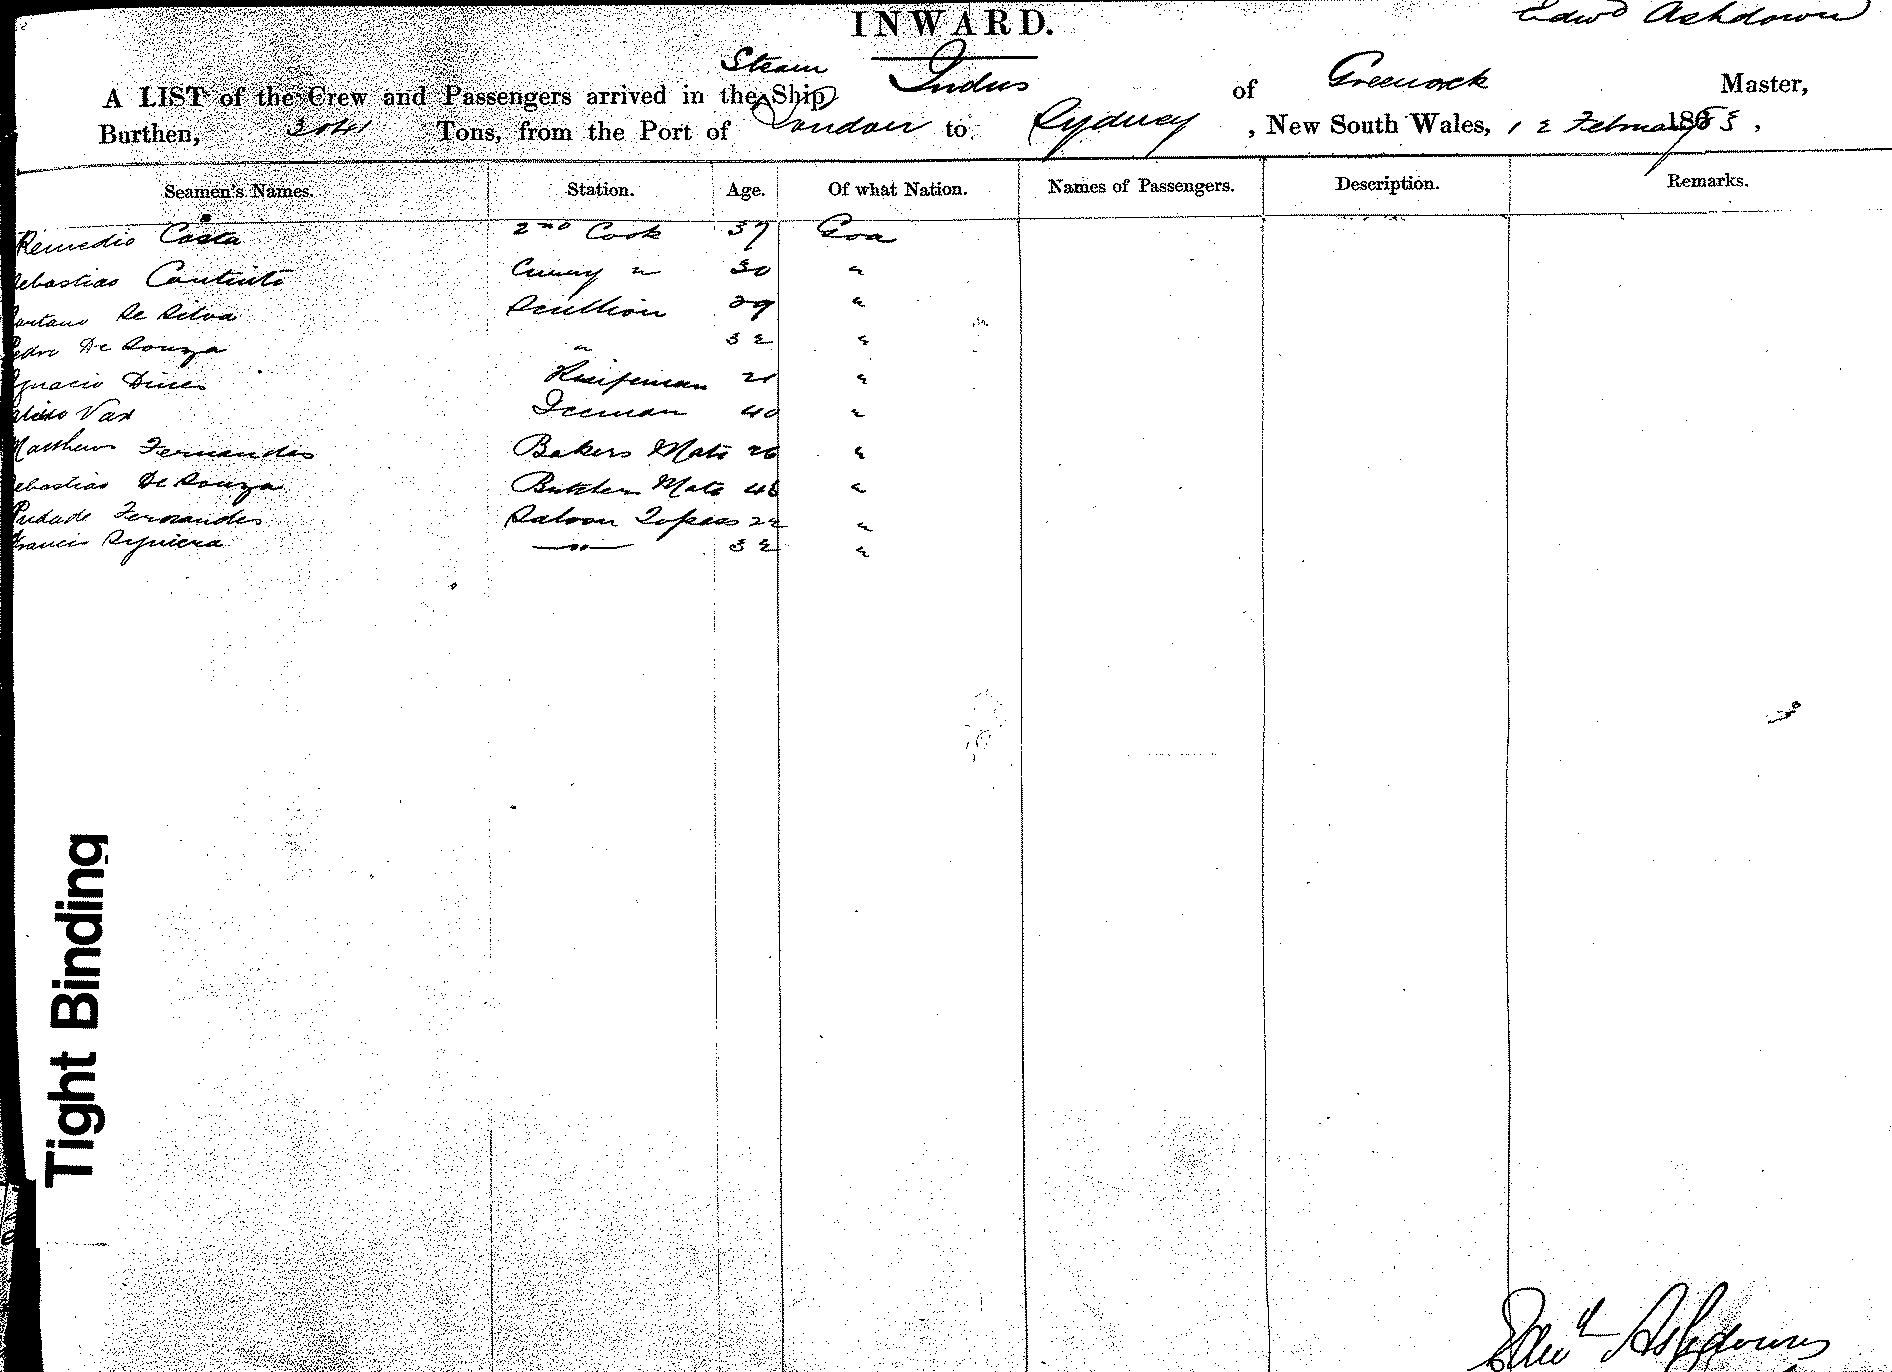 INWARD.
Edwd Ashdown
A LIST of the Crew and Passengers arrived in the Steam Ship Indus of Greenock Master,
Burthen, 2041 Tons, from the Port of London to Sydney, New South Wales, 12 February 1883,
Seamen's Names. Station. Age. Of what Nation. Names of Passengers. Description. Remarks.
Remedio Costa 2nd Cook 37 Goa
ebastiao Coutinho Curry " 30 "
aetano De Silva Scullion 29 "
edro De Souza " 32 "
gnacio Dines Knifeman 21 "
Vas Iceman 40 "
Matthew Fernandes Bakers Mate 26 "
ebastiao De Souza Butcher Mate 46 "
Piedade Fernandes Saloon Topass 22 "
Francis Sequiera " 32 "
Tight Binding
Edwd Ashdown